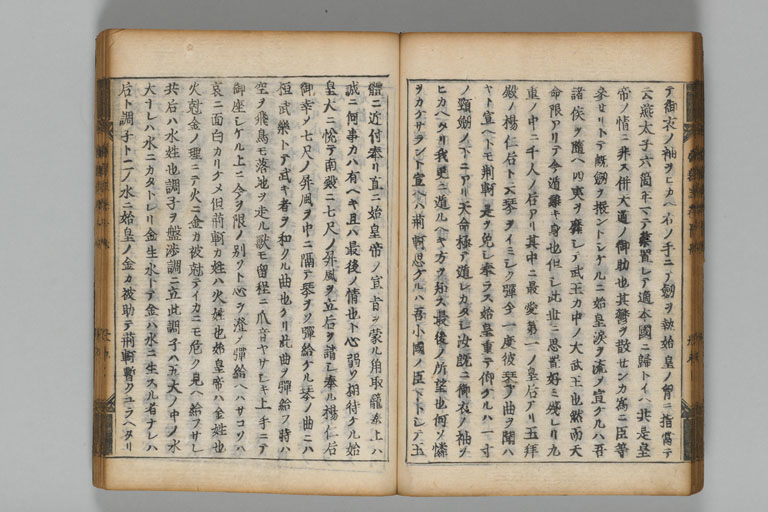 テ御衣ノ袖ヲヒカヘ右ノ手ニテ劔ヲ執始皇ノ胷ニ指當テ
云燕太子六箇年マテ禁置レテ適本國ニ歸トイヘ共是皇
帝ノ情ニ非ス併大道ノ御助也其鬱ヲ散センカ為ニ臣等
參セリトテ既劔ヲ振ントシケルニ始皇涙ヲ流メ宣ケルハ吾
諸侯ヲ隨ヘ四夷ヲ靡シテ武王カ中ノ大武王也然而天
命限アリテ今遁難キ身也但シ此世ニ思置好ミ殘レリ九
重ノ中ニ千人ノ后アリ其中ニ最愛第一ノ皇后アリ五拜
殿ノ楊仁后ト云琴ヲイミシク彈今一度彼琴ノ曲ヲ聞ハ
ヤト宣ヘトモ荊軻是ヲ免シ奉ラス始皇重テ仰ケルハ一寸
ノ頸劔ノ下ニアリ天命極テ遁レカタシ汝既ニ御衣ノ袖ヲ
ヒカヘタリ我更ニ遁ルヘキ方ヲ知ス最後ノ所望也何ソ憐
ヲカケサラント宣ヘハ荊軻思ケルハ吾小國ノ臣下トシテ王
體ニ近付奉リ直ニ始皇帝ノ宣旨ヲ蒙ル角取籠奉上ハ
誠ニ何事カハ有ヘキ且ハ最後ノ情也ト心弱ク相待ケル始
皇大ニ悅テ南殿ニ七尺ノ屏風ヲ立后ヲ請シ奉ル楊仁后
御幸ノ七尺ノ屏風ヲ中ニ隔テ琴ヲソ彈給ケル琴ノ曲ニハ
桓武樂トテ武キ者ヲ和クル曲也ケリ此曲ヲ彈給フ時ハ
空ヲ飛鳥モ落地ヲ走ル獸モ留程ニ爪音ヤサシキ上手ニテ
御座シケル上ニ今ヲ限ノ別ソト心ヲ澄メ彈給ヘハサコソハ
哀ニ面白カリケメ但荊軻カ姓ハ火姓也始皇帝ハ金姓也
火尅金ノ理ニテ火ニ金カ被尅テイカニモ危ク見ヘ給フサレ
共后ハ水姓也調子ヲ盤渉調ニ立此調子ハ五大ノ中ノ水
大ナレハ水ニカタトレリ金生水トテ金ハ水ニ生スル者ナレハ
后ト調子ト二ノ水ニ始皇ノ金カ被助テ荊軻暫クユラヘタリ